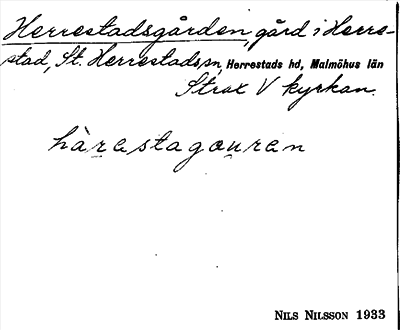 Herrestadsgården, gård i Herre-
stad, St. Herrestads sn, Herrestads hd, Malmöhus län
Strax V kyrkan.
hàrestagou̯ren
NILS NILSSON 1933